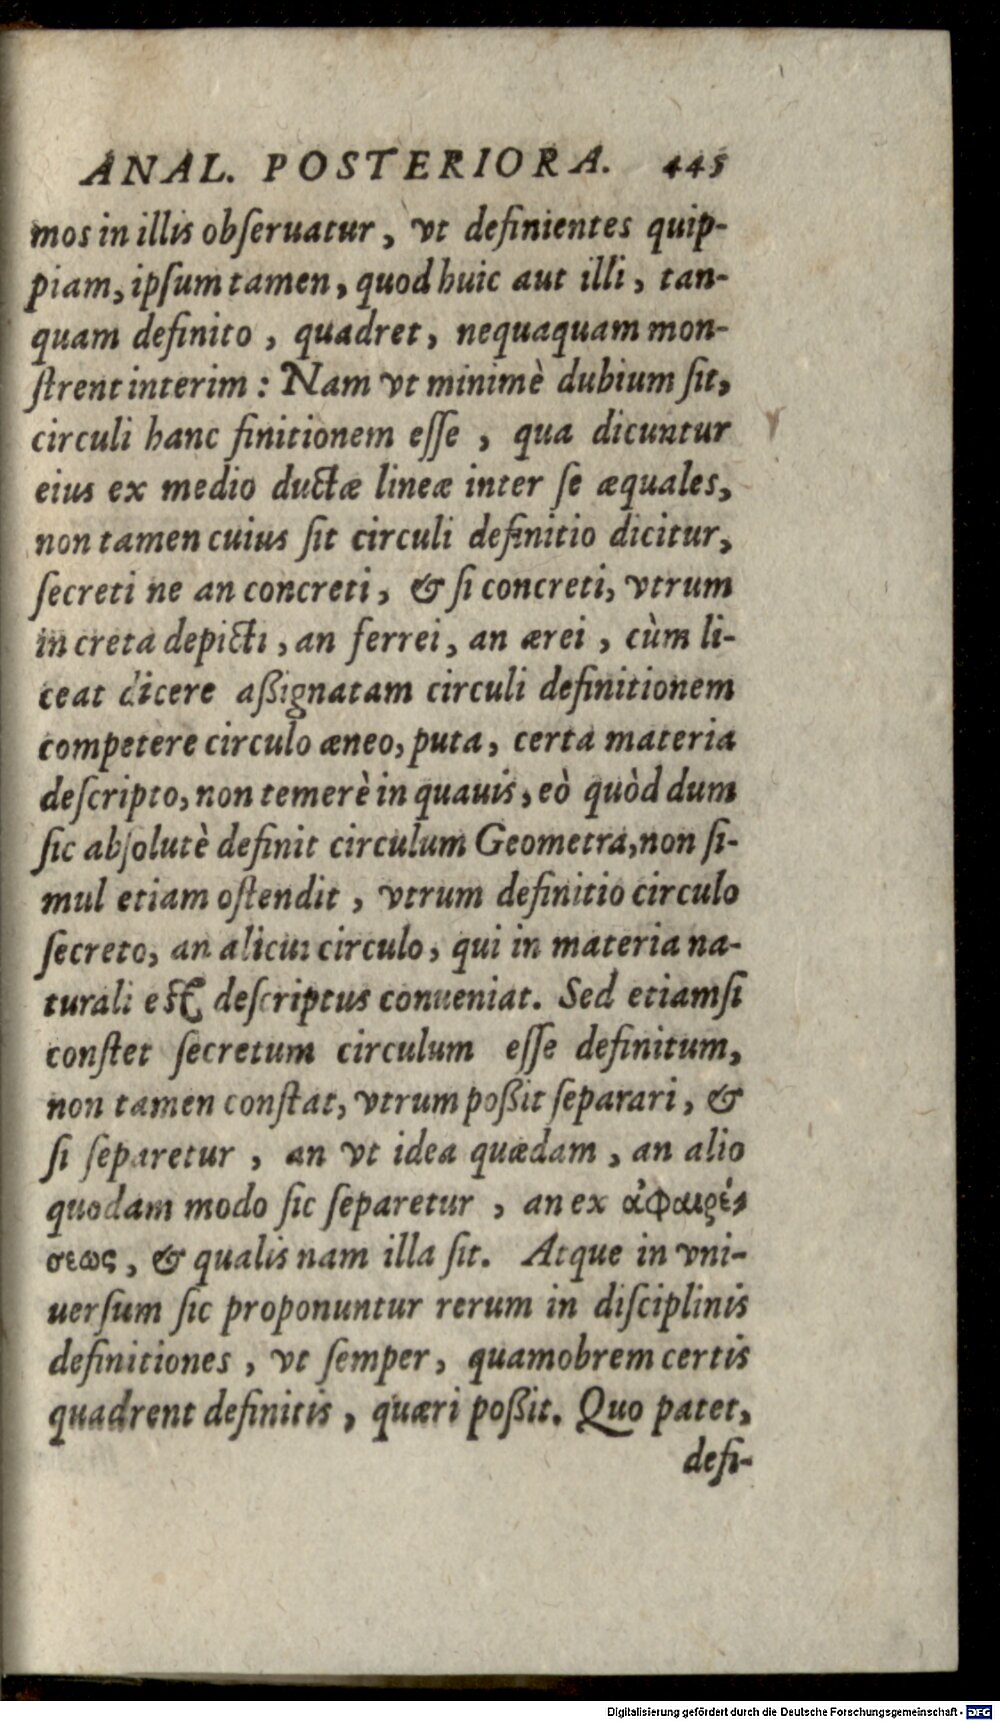 ANAL. POSTERIORA. 445
mos in illis obſeruatur, vt definientes quip-
piam, ipſum tamen, quod huic aut illi, tan-
quam definito, quadret, nequaquam mon-
ſtrent interim: Nam vt minimè dubium ſit,
circuli hanc finitionem eſſe, qua dicuntur
eius ex medio ductæ lineæ inter ſe æquales,
non tamen cuius ſit circuli definitio dicitur,
ſecreti ne an concreti, & ſi concreti, vtrum
in creta depicti, an ferrei, an ærei, cùm li-
ceat dicere aßignatam circuli definitionem
competere circulo æneo, puta, certa materia
deſcripto, non temerè in quauis, eò quòd dum
ſic abſolutè definit circulum Geometra, non ſi-
mul etiam oſtendit, vtrum definitio circulo
ſecreto, an alicui circulo, qui in materia na-
turali eſt deſcriptus conueniat. Sed etiamſi
conſtet ſecretum circulum eſſe definitum,
non tamen conſtat, vtrum poßit ſeparari, &
ſi ſeparetur, an vt idea quædam, an alio
quodam modo ſic ſeparetur, an ex ἀφαιρέ-
σεως, & qualis nam illa ſit. Atque in vni-
uerſum ſic proponuntur rerum in diſciplinis
definitiones, vt ſemper, quamobrem certis
quadrent definitis, quæri poßit. Quo patet,
defi-
Digitalisierung gefördert durch die Deutsche Forschungsgemeinschaft - DFG